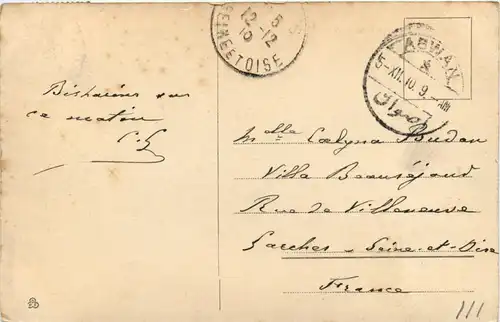 12-12
10
SEINE ET OISE
ASWAN
5-XII.10.9 - AM
أسوان
ce matin
Melle Calyna Budan
Villa Beauséjour
Rue de Villeneuve
Garches - Seine-et-Oise
France
111